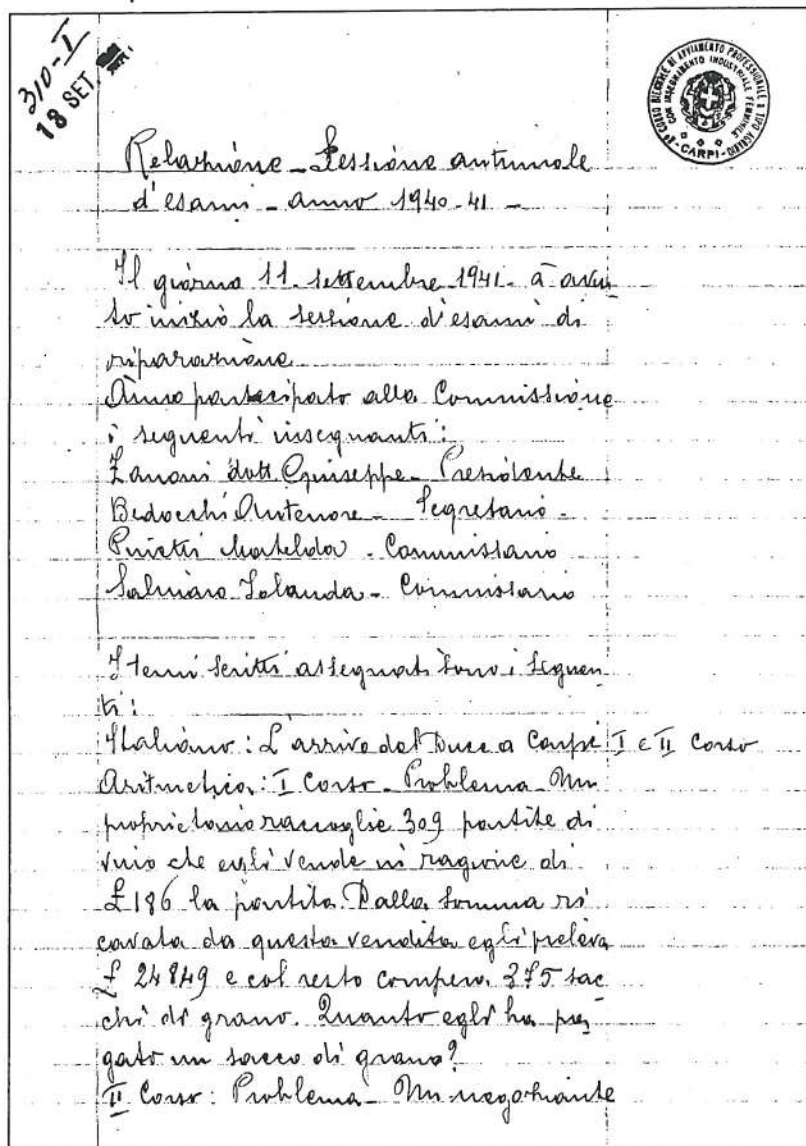 310-I
18 SET.
R° CORSO BIENNALE DI AVVIAMENTO PROFESSIONALE A TIPO AGRARIO
CON INSEGNAMENTO INDUSTRIALE FEMMINILE
- CARPI -
Relazione - Sessione autunnale
d'esami - anno 1940-41 -
Il giorno 11 settembre 1941 - à avu
to inizio la sessione d'esami di
riparazione
Ànno partecipato alla Commissione
i seguenti insegnanti:
Zanoni dott. Giuseppe - Presidente
Bedocchi Antenore - Segretario -
Matelda - Commissario
Iolanda - Commissario
I temi scritti assegnati sono i seguen
ti:
Italiano: L'arrivo del Duce a Carpi I e II Corso
Aritmetica: I Corso - Problema - Un
proprietario raccoglie 309 partite di
vino che egli vende in ragione di
£ 186 la partita. Dalla somma ri
cavata da questa vendita egli preleva
£ 24849 e col resto compera 375 sac
chi di grano. Quanto egli ha pa
gato un sacco di grano?
II Corso: Problema - Un negoziante